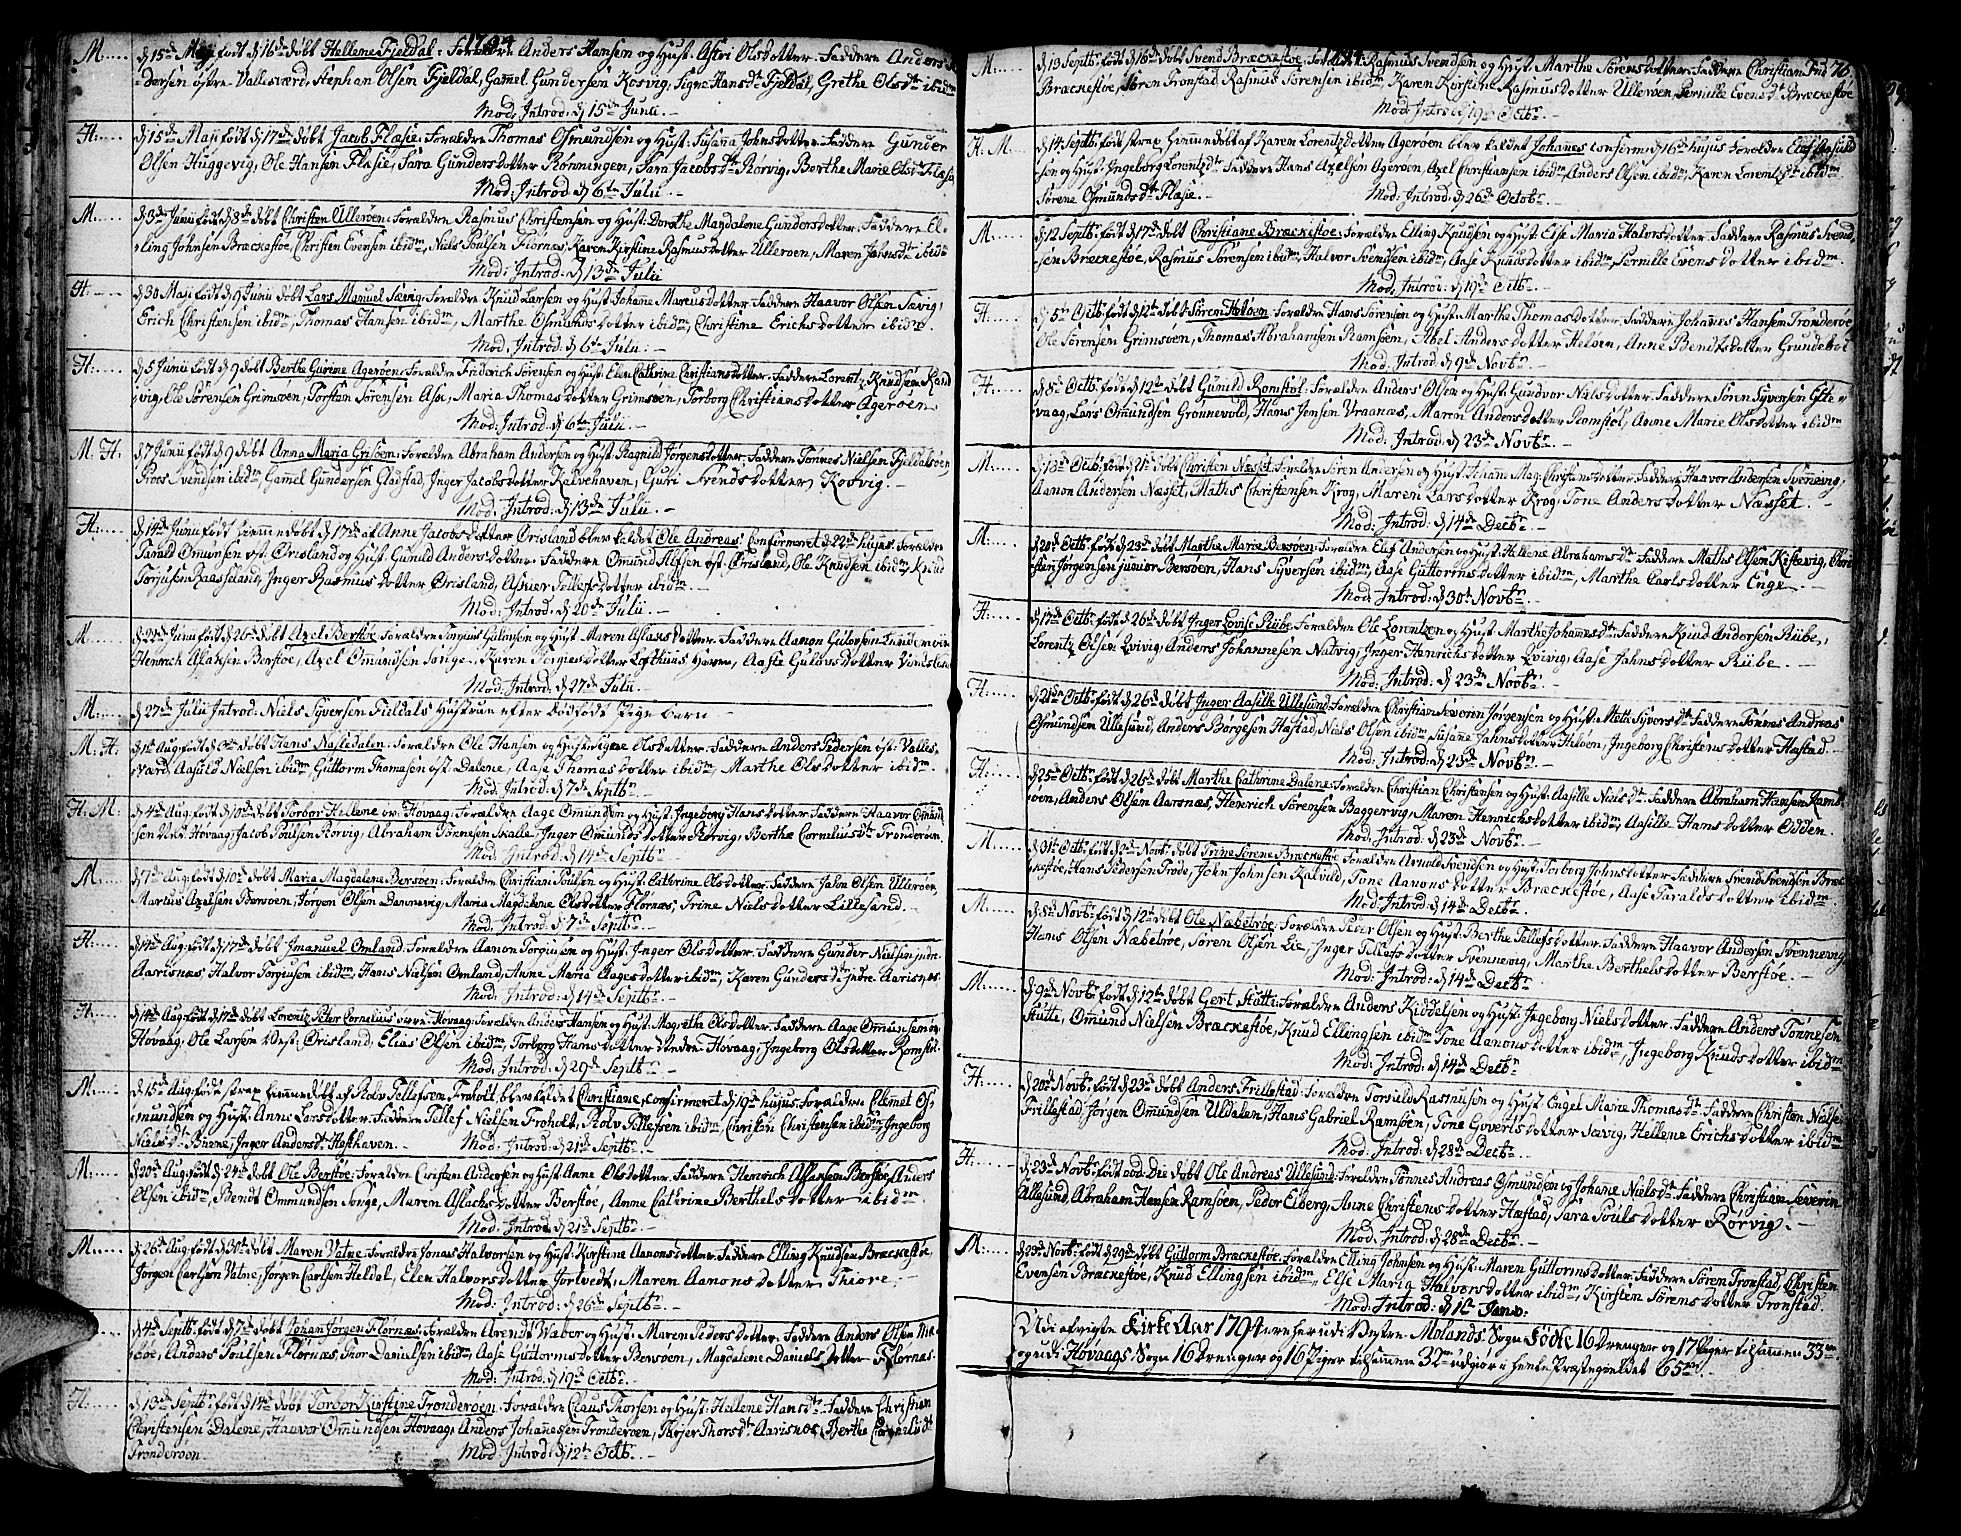 1794
M. d 15de Maj født d 16de døbt Hellene Fjeldal: Forældre Anders Hansen og Hust: Astri Olsdotter. Faddere Anders
dersen østre Vallesværd, Stephan Olsen Fjeldal, Gamel Gundersen Kosvig, Signe Hansdt Fjeldal, Grethe Olsdt ibidm
Mod: Introd: d 15de Junii. —
H. d 15de Maji født d 17de døbt Jacob Flasie: Forældre Thomas Osmundsen og Hust: Susana Johnsdotter. Faddere Gunder
Olsen Huggevig, Ole Hansen Flasie, Sara Gundersdotter Rønningen, Sara Jacobsdt Rørvig, Berthe Marie Olsdt
Mod: Introd: d 6te Julii. —
M. d 3de Junii født d 8de døbt Christen Ulleröen: Forældre Rasmus Christensen og Hust: Dorthe Magdalene Gundersdotter. Faddere El-
ling Johnsen Bræckestøe, Christen Evensen ibidm, Niels Poulsen Flörnæs, Karen Kirstine Rasmusdotter Ulleröen, Maren Johnsdt ibidm
Mod: Introd: d 13de Julii
H. d 30 Maji født d 9 Junii døbt Lars Manuel Sævig: Forældre Knud Larsen og Hust: Johane Marcusdotter. Faddere Haavor Olsen Sævig,
Erich Christensen ibidm, Thomas Hansen ibidm, Marthe Osmundsdotter ibidm, Christine Erichsdotter ibidm.
Mod: Introd: d 6te Julii. —
H. d 5 Junii født d 9 døbt Berthe Gurine Ageröen: Forældre Friderich Sørensen og Hust: Elen Cathrine Christiansdotter. Faddere Lorentz Knudsen
vig, Ole Sørensen Grimsøen, Torsten Sørensen Ase, Maria Thomasdotter Grimsøen, Torborg Christiansdotter Ageröen
Mod: Introd: d 6te Julii. —
M. H. d 7 Junii født d 9 døbt Anna Maria Grisöen: Forældre Abraham Andersen og Hust: Ragnild Jørgensdotter. Faddere Tønnes Nielsen Fjeldalsöen,
Svendsen ibidm, Gamel Gundersen Gladstad, Inger Jacobsdotter Kalvehaven, Guri Svendsdotter Kosvig. —
Mod: Introd: d 13de Julii. —
H. d 14de Junii født hiemmedøbt d 17de af Anne Jacobsdotter Örisland blev kaldet Ole Andreas. Confirmeret d 22de hujus. Forældre
Tarald Omunsen øst: Örisland og Hust: Gunild Andersdotter. Faddere Omund Alfsen øst: Örisland, Ole Knudsen ibidm, Knud
Torjusen Raasseland, Inger Rasmusdotter Örisland, Tellefsdotter ibidm. —
Mod: Introd: d 20de Julii. —
M. d 22de Junii født d 26de døbt Axel Berstöe: Forældre og Hust: Maren Aslaksdotter. Faddere Aamon
Henrich Aslaksen Berstöe, Axel Omundsen Songe, Karen Torgiesdotter Lofthuus, Aaste
Mod: Introd: d 27de Julii. —
M. d 27de Julii Introd: Niels Syversen Fieldals Hustrue efter Dødfødt Pigebarn —
M. H. d 1ste Aug: født d 3de døbt Hans Nastedalen: Forældre Ole Hansen og Hust: Signe Olsdotter. Faddere Anders Pedersen øst: Valles-
værd, Aasuld Nielsen ibidm, Guttorm Thomasen øst: Dalene, Aase Thomasdotter ibidm, Marthe Olsdotter ibidm.
Mod: Introd: d 7de Septbr. —
H. M. d 4de Aug: født d 10de døbt Torbor Hellene ov: Hovaag: Forældre Aage Omundsen og Hust: Ingeborg Hansdotter. Faddere Haavor Omund-
sen Hovaag, Jacob Poulsen Rørvig, Abraham Tønnesen Skalle, Inger Omundsdotter Rørvig, Berthe Corneliusdt Tronderöen.
Mod: Introd: d 14de Septbr. —
M. d 7de Aug: født d 10de døbt Maria Magdalene Bersöen: Forældre Christian Poulsen og Hust: Cathrine Olsdotter. Faddere John Olsen Ulleröen,
Martius Axelsen Bersöen, Jörgen Olsen Dannevig, Maria Magdalene Olsdotter Flörnæs, Trine Nielsdotter Lillesand. —
Mod: Introd: d 7de Septbr. —
H. d 14de Aug: født d 17de døbt Imanuel Omland: Forældre Aanon Torgiusen og Hust: Inger Olsdotter. Faddere Gunder Nielsen indre
Aarisnæs, Halvor Torgiusen ibidm, Hans Nielsen Omland, Anne Maria Aagesdotter ibidm, Karen Gundersdt indre Aarisnæs.
Mod: Introd: d 14de Septbr. —
H. d 14de Aug: født d 17de døbt Lorentz Peter Cornelius Hovaag: Forældre Anders Hansen og Hust: Magrethe Olsdotter. Faddere Aage Omunsen ov:
Hovaag, Ole Larsen Vest: Örisland, Elias Olsen ibidm, Torborg Hansdotter Hovaag, Ingeborg Olsdotter Romstöl.
Mod: Introd: d 29de Septbr. —
M. d 15de Aug: født strax hiemmedøbt af Rolv Tellefsen Froholt, blev kaldet Christiane, confirmeret d 19de hujus: Forældre Clemet Os-
mundsen og Hust: Anne Larsdotter. Faddere Tellef Nielsen Froholt, Rolv Tellefsen ibidm, Christen Christensen ibidm, Ingeborg
Nielsdt Buene, Inger Andersdt Hesthaven. — Mod: Introd: d 21de Septbr. —
M. d 20de Aug: født d 24de døbt Ole Berstöe: Forældre Christen Andersen og Hust: Anne Olsdotter. Faddere Henrich Aslaksen Berstöe, Anders
Olsen ibidm, Bendt Omundsen Songe, Maren Aslachsdotter Berstöe, Anne Cathrine Berthelsdotter ibidm. —
Mod: Introd: d 21de Septbr. —
M. d 26de Aug: født d 30te døbt Maren Vatne: Forældre Jonas Halvorsen og Hust: Kirstine Aanonsdotter. Faddere Elling Knudsen Bræckestöe,
Jørgen Carlsen Vatne, Jørgen Carlsen Heldal, Elen Halvorsdotter Jortvedt, Maren Aanonsdotter Thiore. —
Mod: Introd: d 26de Septbr. —
d 4de Septbr: født d 7de døbt Johan Jørgen Flörnæs: Forældre Arendt Wabor og Hust: Maren Pedersdotter. Faddere Anders Olsen
öe, Anders Poulsen Flörnæs, Thor Danielsen ibidm, Aase Guttormsdotter Bersöen, Magdalene Danielsdotter Flörnæs.
Mod: Introd: d 19de Octbr. —
H. d 13de Septbr: født d 14de døbt Torbor Kirstine Tronderöen: Forældre Claus Thorsen og Hust: Hellene Hansdt. Faddere Christian
Christensen Dalene, Haavor Omundsen Hovaag, Anders Johannesen Tronderöen, Thorsdt Aarisnæs, Berthe Corneliidt
Tronderöen. Mod: Introd: d 12te Octbr. —
1794
76.
M. d 13 Septbr: født d 16de døbt Svend Bræckestöe. Forældre Rasmus Svendsen og Hust: Marthe Sørensdotter. Faddere Christian
Bræckestöe, Sören Tronstad, Rasmus Sörensen ibidm, Karen Kirstine Rasmusdotter Ulleröen, Pernille Evensdt Bræckestöe
Mod: Introd: d 19de Octbr. —
H. M. d 14 Septbr: født strax hiemmedøbt af Karen Lorentzdotter Ageröen blev kaldet Johanes, confirm: d 16de hujus. Forældre
sen og Hust: Ingeborg Lorentzdt. Faddere Hans Axelsen Ageröen, Axel Christiansen ibidm, Anders Olsen ibidm, Karen Lorentzdt ibidm
Sørene Osmundsdt Flasie. — Mod: Introd: d 26de Octobr. —
M. d 12 Septbr: født d 17de døbt Christiane Bræckestöe: Forældre Elling Knudsen og Hust: Else Maria Halvorsdotter. Faddere Rasmus Svend-
sen Bræckestöe, Rasmus Sørensen ibidm, Halvor Svendsen ibidm, Aase Knudsdotter ibidm, Pernille Evensdotter ibidm.
Mod: Introd: d 19de Octbr. —
H. d 5te Octbr: født d 12te døbt Sören Helöen: Forældre Hans Sørensen og Hust: Marthe Thomasdotter. Faddere Johannes Hansen Tronderöe,
Ole Sørensen Grimsöen, Thomas Abrahamsen Ramsöen, Abel Andersdotter Helöen, Anne Bendtsdotter Grundesöe
Mod: Introd: d 9de Novbr. —
H. d 8de Octbr: født d 12te døbt Gunild Romstöl: Forældre Anders Olsen og Hust: Gundvor Nielsdotter. Faddere Sören Syversen Este-
vaag, Lars Omundsen Grönnevold, Hans Jensen Vraanæs, Maren Andersdotter Romstöl, Anne Marie Olsdotter ibidm
Mod: Introd: d 23de Novbr. —
M. d 18de Octbr: født d 21de døbt Christen Næsset: Forældre Sören Andersen og Hust: Johanne Mag: Christensdotter. Faddere Haavor Andersen Svennevig,
Aanon Andersen Næsset, Maths Christensen Krog, Maren Larsdotter Krog, Tone Andersdotter Næsset. —
Mod: Introd: d 14de Decbr. —
M. d 20de Octbr: født d 23de døbt Marthe Marie Bersöen: Forældre Elef Andersen og Hust: Hellene Abrahamsdt. Faddere Maths Olsen Kistevig, Chri-
sten Jörgensen junior Bersöen, Hans Syversen ibidm, Aase Guttormsdotter ibidm, Marthe Carlsdotter Enge. —
Mod: Introd: d 30te Novbr. —
H. d 17de Octbr: født d 26de døbt Inger Lovise Ribe: Forældre Ole Lorentzen og Hust: Marthe Johannesdt. Faddere Knud Andersen Ribe,
Lorentz Olsen Qvivig, Anders Johannesen Natvig, Inger Henrichsdotter Qvivig, Aase Jahnsdotter Ribe. —
Mod: Introd: d 23de Novbr. —
H. d 21de Octbr: født d 26de døbt Inger Aasille Ullesund: Forældre Christian Severin Jørgensen og Hust: Mette Syversdt. Faddere Tönnes Andreas
Osmundsen Ullesund, Anders Borgesen Hæstad, Niels Olsen ibidm, Susane Jahnsdotter Helöen, Ingeborg Christensdotter Hæstad. —
Mod: Introd: d 23de Novbr. —
H. d 25de Octbr: født d 26de døbt Marthe Cathrine Dalene: Forældre Christian Christensen og Hust: Aasille Nielsdt. Faddere Abraham Hansen Rams-
öen, Anders Olsen Aarnæs, Henrich Sørensen Baggervig, Maren Henrichsdotter ibidm, Aasille Hansdotter Odden. —
Mod: Introd: d 23de Novbr. —
M. d 31te Octbr: født d 2de Novbr: døbt Trine Sørene Bræckestöe: Forældre Arnold Svendsen og Hust: Torborg Johnsdotter. Faddere Svend Svendsen Bræc-
kestöe, Hans Pedersen Trøde, John Johnsen Kalvild, Tone Aanonsdotter Bræckestöe, Aase Taraldsdotter ibidm.
Mod: Introd: d 14de Decbr. —
M. d 8de Novbr: født d 12te døbt Ole Næbetröe: Forældre Peter Olsen og Hust: Berthe Tellefsdotter. Faddere Haavor Andersen Svennevig,
Hans Olsen Næbetröe, Sören Olsen Lie, Inger Tellefsdotter Svennevig, Marthe Berthelsdotter Berstöe. —
Mod: Introd: d 14de Decbr. —
M. d 9de Novbr: født d 12te døbt Gert Stutte: Forældre Anders Kiddelsen og Hust: Ingeborg Nielsdotter. Faddere Anders Tönnesen
Stutte, Omund Nielsen Bræckestöe, Knud Ellingsen ibidm, Tone Aanonsdotter ibidm, Ingeborg Knudsdotter ibidm
Mod: Introd: d 14de Decbr. —
H. d 20de Novbr: født d 23de døbt Anders Frillestad: Forældre Torsild Rasmusen og Hust: Engel Marie Thomasdt. Faddere Christen Nielsen
Frillestad, Jørgen Omundsen Uldalen, Hans Gabriel Ramsöen, Tone Govertsdotter Sævig, Hellene Erichsdotter ibidm
Mod: Introd: d 28de Decbr. —
H. d 23de Novbr: født eod: Die døbt Ole Andreas Ullesund: Forældre Tönnes Andreas Osmundsen og Johane Nielsdt. Faddere Christian Severin
Ullesund, Abraham Hansen Ramsöen, Peder Elberg, Anne Christensdotter Hæstad, Sara Poulsdotter Rörvig. —
Mod: Introd: d 28de Decbr. —
M. d 23de Novbr: født d 29de døbt Guttorm Bræckestöe: Forældre Elling Johnsen og Hust: Maren Guttormsdotter. Faddere Sören Tronstad, Christen
Evensen Bræckestöe, Knud Ellingsen ibidm, Else Maria Halvorsdotter ibidm, Kirsten Sørensdotter Tronstad.
Mod: Introd: d 1ste Janv:
Udi afvigte Kirke Aar 1794 ere her udi Vestre Molands Sogn Födte 16 Drenger og 17 Piger tilsammen 33m
og udi Hövaags Sogn 16 Drenger og 16 Piger tilsammen 32m udgiør i heele Præstegieldet 65m